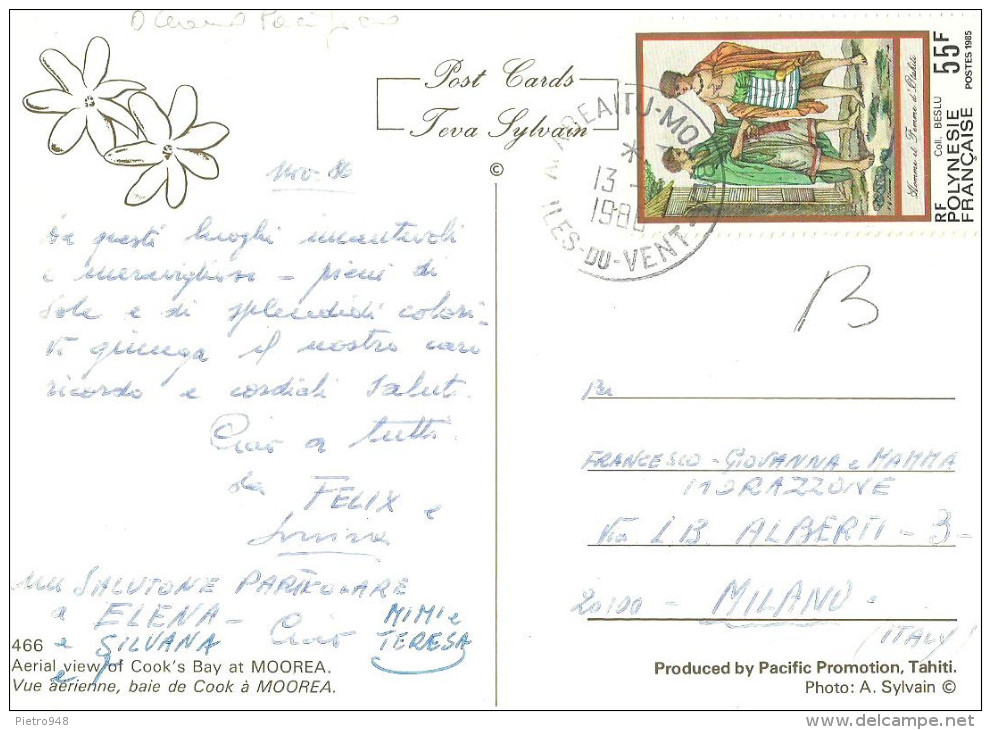 Post Cards
Teva Sylvain
©
Nov. 86
Da questi luoghi incantevoli
e meravigliosi - pieni di
sole e di splendidi colori -
Vi giunga il nostro caro
ricordo e cordiali saluti.
Ciao a tutti.
da FELIX e
un SALUTONE PARTICOLARE
a ELENA - Ciao MIMI e
e SILVANA TERESA
e
466
Aerial view of Cook's Bay at MOOREA.
Vue aérienne, baie de Cook à MOOREA.
55F
POSTES 1985
Homme et Femme d'Otahiti
Coll. BESLU
RF
POLYNESIE
FRANÇAISE
13
198
ILES-DU-VENT
B
FRANCESCO - GIOVANNA e MAMMA
MORAZZONE
Via L.B. ALBERTI - 3 -
20100 - MILANO -
(ITALY)
Produced by Pacific Promotion, Tahiti.
Photo: A. Sylvain ©
Pietro948
delcampe.net